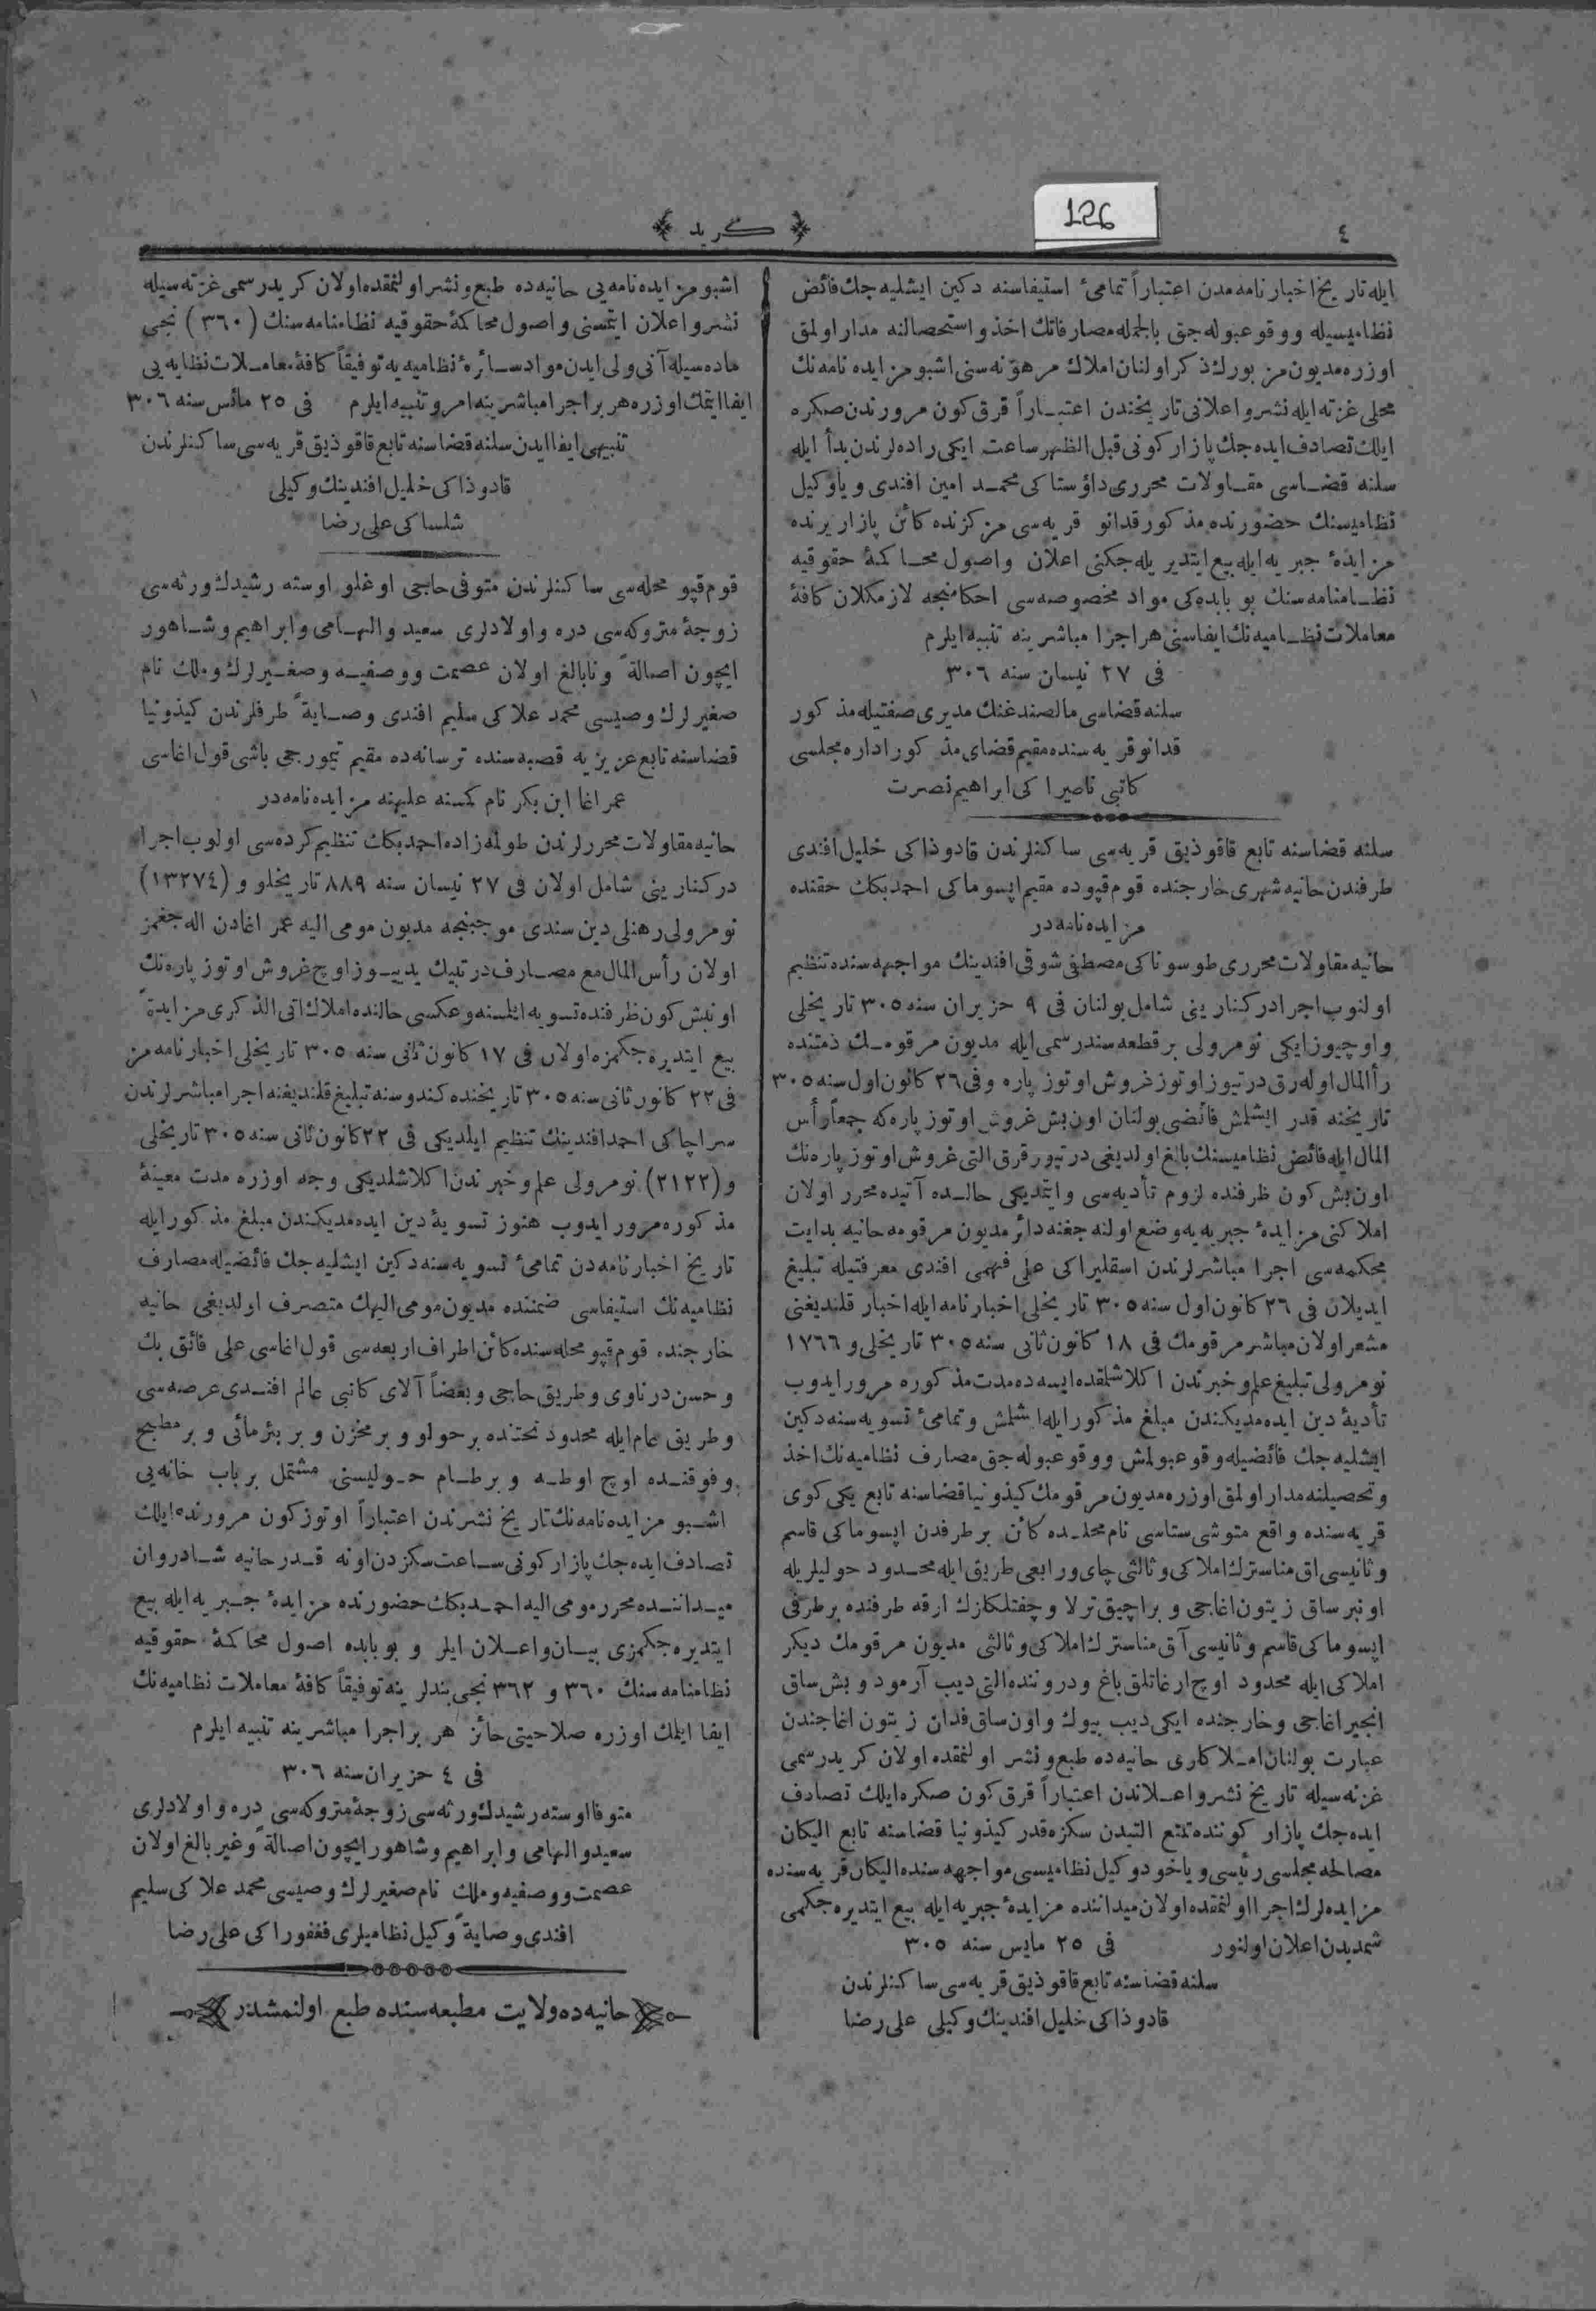 ٤
126
كريد
ايله تاريخ اخبارنامه مدن اعتباراً تمامئ استيفاسنه دكين ايشليه جك فائض
نظاميسيله ووقوعبوله جق بالجمله مصارفاتك اخذ واستحصالنه مدار اولمق
اوزره مديون مزبورك ذكر اولنان املاك مرهونه سنى اشبو مزايده نامه نك
محلى غزته ايله نشر واعلانى تاريخندن اعتباراً قرق كون مرورندن صكره
ايلك تصادف ايده جك پازار كونى قبل الظهر ساعت ايكى راده لرندن بدأ ايله
سلنه قضاسى مقاولات محررى داؤستاكى محمد امين افندى وياوكيل
نظاميسنك حضورنده مذكور قدانو قريه سى مركزنده كائن پازار يرنده
مزايدۀ جبريه ايله بيع ايتديريله جكنى اعلان واصول محاكمۀ حقوقيه
نظامنامه سنك بو بابده كى مواد مخصوصه سى احكامنجه لازمكلان كافۀ
معاملات نظاميه نك ايفاسنى هر اجرا مباشرينه تنبيه ايلرم
فى ٢٧ نيسان سنه ٣٠٦
سلنه قضاسى مالصندغنك مديرى صفتيله مذكور
قدانو قريه سنده مقيم قضاى مذكور اداره مجلسى
كاتبى ناصيراكى ابراهيم نصرت
سلنه قضاسنه تابع قاقوذيق قريه سى ساكنلرندن قادوذاكى خليل افندى
طرفندن حانيه شهرى خارجنده قوم قپوده مقيم اپسوماكى احمد بكك حقنده
مزايده نامه در
حانيه مقاولات محررى طوسوناكى مصطفى شوقى افندينك مواجهه سنده تنظيم
اولنوب اجرا دركنارينى شامل بولنان فى ٩ حزيران سنه ٣٠٥ تاريخلى
واوچيوز ايكى نومرولى برقطعه سند رسمى ايله مديون مرقومك ذمتنده
رأالمال اوله رق درتيوز اوتوز غروش اوتوز پاره وفى ٢٦ كانون اول سنه ٣٠٥
تاريخنه قدر ايشلمش فائضى بولنان اون بش غروش اوتوز پاره كه جمعاً رأس
المال ايله فائض نظاميسنك بالغ اولديغى درتيوز قرق التى غروش اوتوز پاره نك
اون بش كون ظرفنده لزوم تأديه سى وايتمديكى حالده آتيده محرر اولان
املاكنى مزايدۀ جبريه يه وضع اولنه جغنه دائر مديون مرقومه حانيه بدايت
محكمه سى اجرا مباشرلرندن اسقليراكى على فهمى افندى معرفتيله تبليغ
ايديلان فى ٢٦ كانون اول سنه ٣٠٥ تاريخلى اخبارنامه ايله اخبار قلنديغنى
مشعر اولان مباشر مرقومك فى ١٨ كانون ثانى سنه ٣٠٥ تاريخلى و ١٧٦٦
نومرولى تبليغ علم وخبرندن اكلاشلمقده ايسه ده مدت مذكوره مرور ايدوب
تأديۀ دين ايده مديكندن مبلغ مذكور ايله ايشلمش وتمامئ تسويه سنه دكين
ايشليه جك فائضيله وقوعبولمش ووقوعبوله جق مصارف نظاميه نك اخذ
وتحصيلنه مدار اولمق اوزره مديون مرقومك كيذونيا قضاسنه تابع يكى كوى
قريه سنده واقع متوشى ستاسى نام محلده كائن برطرفدن اپسوماكى قاسم
وثانيسى اق مناسترك املاكى وثالثى چاى ورابعى طريق ايله محدود حوليلريله
اونبر ساق زيتون اغاجى و براچيق ترلا وچفتلكازك ارقه طرفنده برطرفى
اپسوماكى قاسم وثانيسى آق مناسترك املاكى وثالثى مديون مرقومك ديكر
املاكى ايله محدود اوچ ارغاتلق باغ ودروننده التى ديب آرمود و بش ساق
انجير اغاجى وخارجنده ايكى ديب بيوك واون ساق فدان زيتون اغاجندن
عبارت بولنان املاكارى حانيه ده طبع ونشر اولنمقده اولان كريد رسمى
غزته سيله تاريخ نشر واعلاندن اعتباراً قرق كون صكره ايلك تصادف
ايده جك پازار كوننده تمتع التيدن سكزه قدر كيذونيا قضاسنه تابع اليكان
مصالحه مجلسى رئيسى وياخود وكيل نظاميسى مواجهه سنده اليكان قريه سنده
مزايده لرك اجرا اولنمقده اولان ميداننده مزايدۀ جبريه ايله بيع ايتديره جكمى
شمديدن اعلان اولنور فى ٢٥ مايس سنه ٣٠٥
سلنه قضاسنه تابع قاقوذيق قريه سى ساكنلرندن
قادوذاكى خليل افندينك وكيلى على رضا
اشبو مزايده نامه يى حانيه ده طبع ونشر اولنمقده اولان كريد رسمى غزته سيله
نشر واعلان ايتمسنى واصول محاكمۀ حقوقيه نظامنامه سنك (٣٦٠) نجى
ماده سيله آنى ولى ايدن مواد سائرۀ نظاميه يه توفيقاً كافۀ معاملات نظاميه يى
ايفا ايتمك اوزره هر بر اجرا مباشرينه امر وتنبيه ايلرم فى ٢٥ مائس سنه ٣٠٦
تنبيهى ايفا ايدن سلنه قضاسنه تابع قاقوذيق قريه سى ساكنلرندن
قادوذاكى خليل افندينك وكيلى
شلساكى على رضا
قوم قپو محله سى ساكنلرندن متوفى حاجى اوغلو اوسته رشيدك ورثه سى
زوجۀ متروكه سى دره واولادلرى سعيد والهامى وابراهيم وشاهور
ايچون اصالةً ونابالغ اولان عصمت ووصفيه وصغيرلرك وملك نام
صغيرلرك وصيسى محمد علاكى سليم افندى وصايةً طرفلرندن كيذونيا
قضاسنه تابع عزيزيه قصبه سنده ترسانه ده مقيم تيمورجى باشى قول اغاسى
عمر اغا ابن بكر نام كمسنه عليهنه مزايده نامه در
حانيه مقاولات محررلرندن طولمه زاده احمد بكك تنظيم كرده سى اولوب اجرا
دركنارينى شامل اولان فى ٢٧ نيسان سنه ٨٨٩ تاريخلو و (١٣٢٧٤)
نومرولى رهنلى دين سندى موجبنجه مديون مومى اليه عمر اغادن اله جغمز
اولان رأس المال مع مصارف درتبيك يدييوز اوچ غروش اوتوز پاره نك
اونبش كون ظرفنده تسويه ايلمسنه وعكسى حالنده املاك اتى الذكرى مزايدةً
بيع ايتديره جكمزه اولان فى ١٧ كانون ثانى سنه ٣٠٥ تاريخلى اخبارنامه مز
فى ٢٢ كانور ثانى سنه ٣٠٥ تاريخنده كندوسنه تبليغ قلنديغنه اجرا مباشرلرندن
سراچاكى احمد افندينك تنظيم ايلديكى فى ٢٢ كانون ثانى سنه ٣٠٥ تاريخلى
و (٢١٢٢) نومرولى علم وخبرندن اكلاشلديكى وجه اوزره مدت معينۀ
مذكوره مرور ايدوب هنوز تسويۀ دين ايده مديكندن مبلغ مذكور ايله
تاريخ اخبارنامه دن تمامئ تسويه سنه دكين ايشليه جك فائضيله مصارف
نظاميه نك استيفاسى ضمننده مديون مومى اليهك متصرف اولديغى حانيه
خارجنده قوم قپو محله سنده كائن اطراف اربعه سى قول اغاسى على فائق بك
وحسن درناوى وطريق حاجى وبعضاً آلاى كاتبى عالم افندى عرصه سى
وطريق عام ايله محدود تحتنده برحولو و برمخزن و بر بئر مائى و بر مطبح
وفوقنده اوچ اوطه و برطام حوليسنى مشتمل برباب خانه يى
اشبو مزايده نامه نك تاريخ نشرندن اعتباراً اوتوز كون مرورنده ايلك
تصادف ايده جك پازار كونى ساعت سكزدن اونه قدر حانيه شادروان
ميداننده محرر مومى اليه احمد بكك حضورنده مزايدۀ جبريه ايله بيع
ايتديره جكمزى بيان واعلان ايلر و بو بابده اصول محاكمۀ حقوقيه
نظامنامه سنك ٣٦٠ و ٣٦٢ نجى بندلرينه توفيقاً كافۀ معاملات نظاميه نك
ايفا ايلمك اوزره صلاحيتى حائز هر بر اجرا مباشرينه تنبيه ايلرم
فى ٤ حزيران سنه ٣٠٦
متوفا اوسته رشيدك ورثه سى زوجۀ متروكه سى دره واولادلرى
سعيد والهامى وابراهيم وشاهور ايچون اصالةً وغير بالغ اولان
عصمت ووصفيه وملك نام صغيرلرك وصيسى محمد علاكى سليم
افندى وصايةً وكيل نظاميلرى فغفوراكى على رضا
حانيه ده ولايت مطبعه سنده طبع اولنمشدر